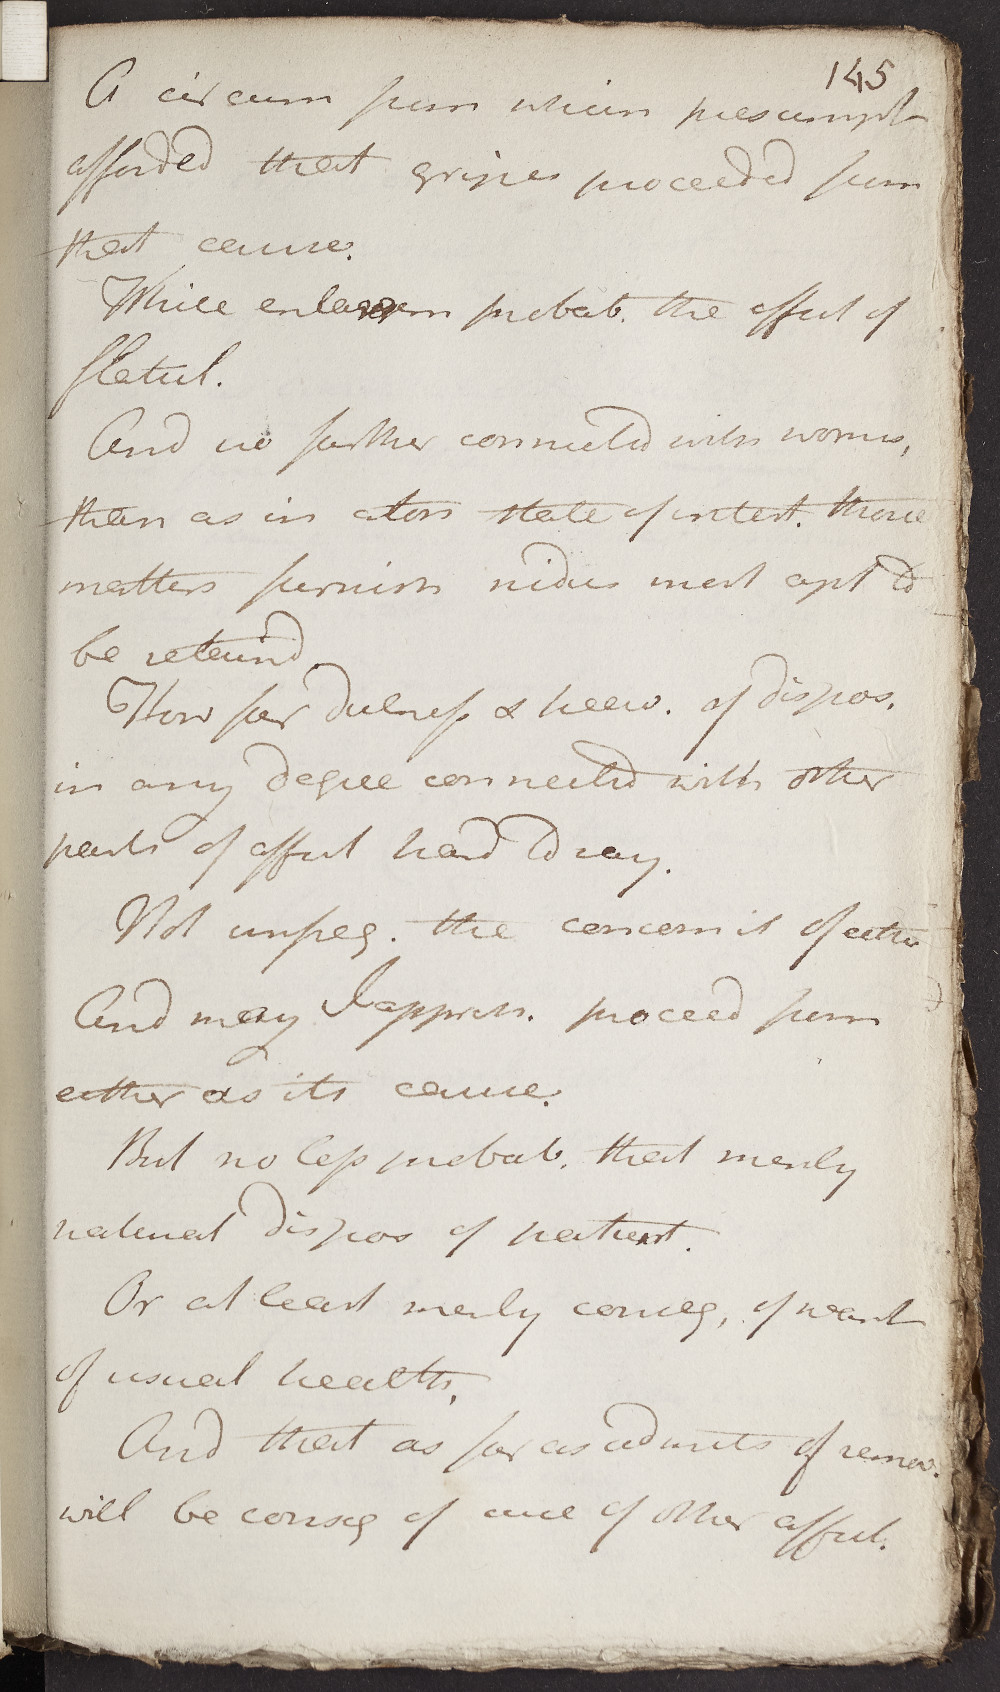 145
A circum from whence presumpt
afforded that gripes proceeded from
that cause.
While enlargem probab. the effect of
flatul.
And no farther connected with worms,
than as in aton state of intest. those
matters furnish nidus most apt to
be retaind
How far dulness & heav. of dispos.
in any degree connected with other
parts of affect hard to say.
Not unfreq. the concomit of either
And may I appreh. proceed from
either as its cause.
But no less probab. that merely
natural dispos of patient.
Or at least merely conseq, of want
of usual health.
And that as far as admits of remov.
will be conseq of cure of other affect.